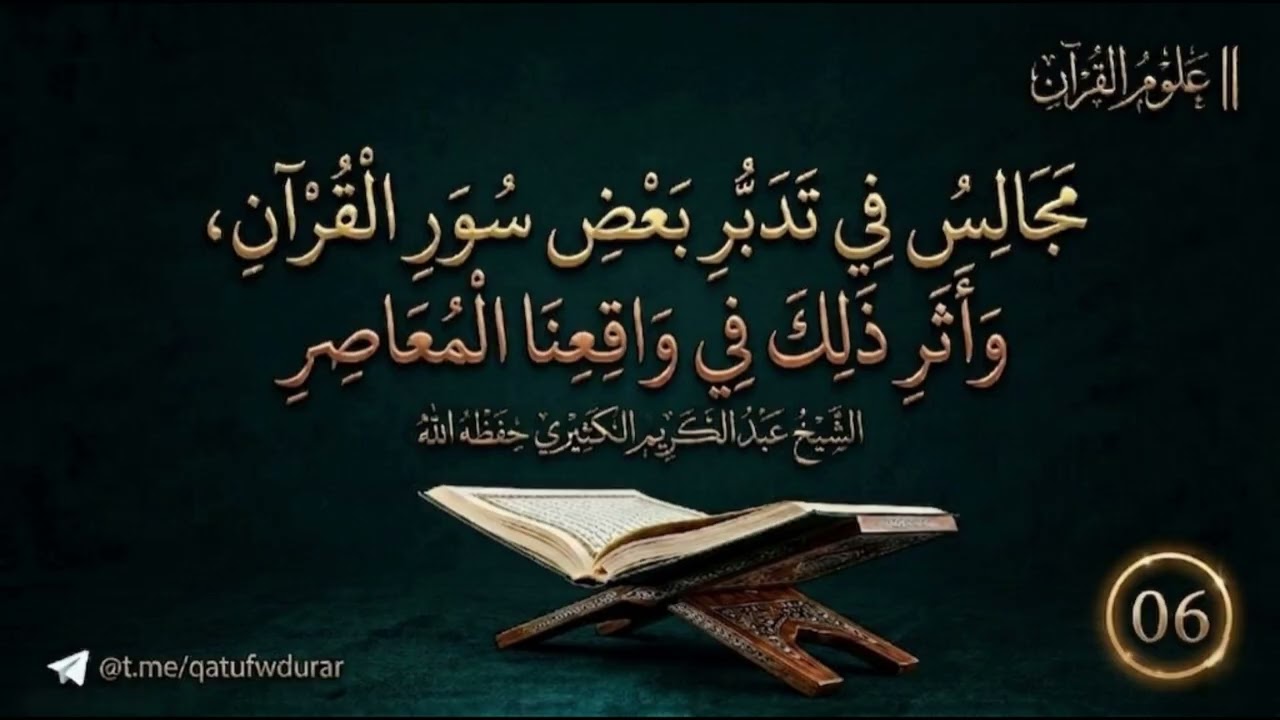 عُلُومُ الْقُرْآنِ ||
مَجَالِسُ فِي تَدَبُّرِ بَعْضِ سُوَرِ الْقُرْآنِ،
وَأَثَرِ ذَلِكَ فِي وَاقِعِنَا الْمُعَاصِرِ
الشَّيْخُ عَبْدُ الْكَرِيمِ الْكَثِيرِي حَفِظَهُ اللَّهُ
06
@t.me/qatufwdurar